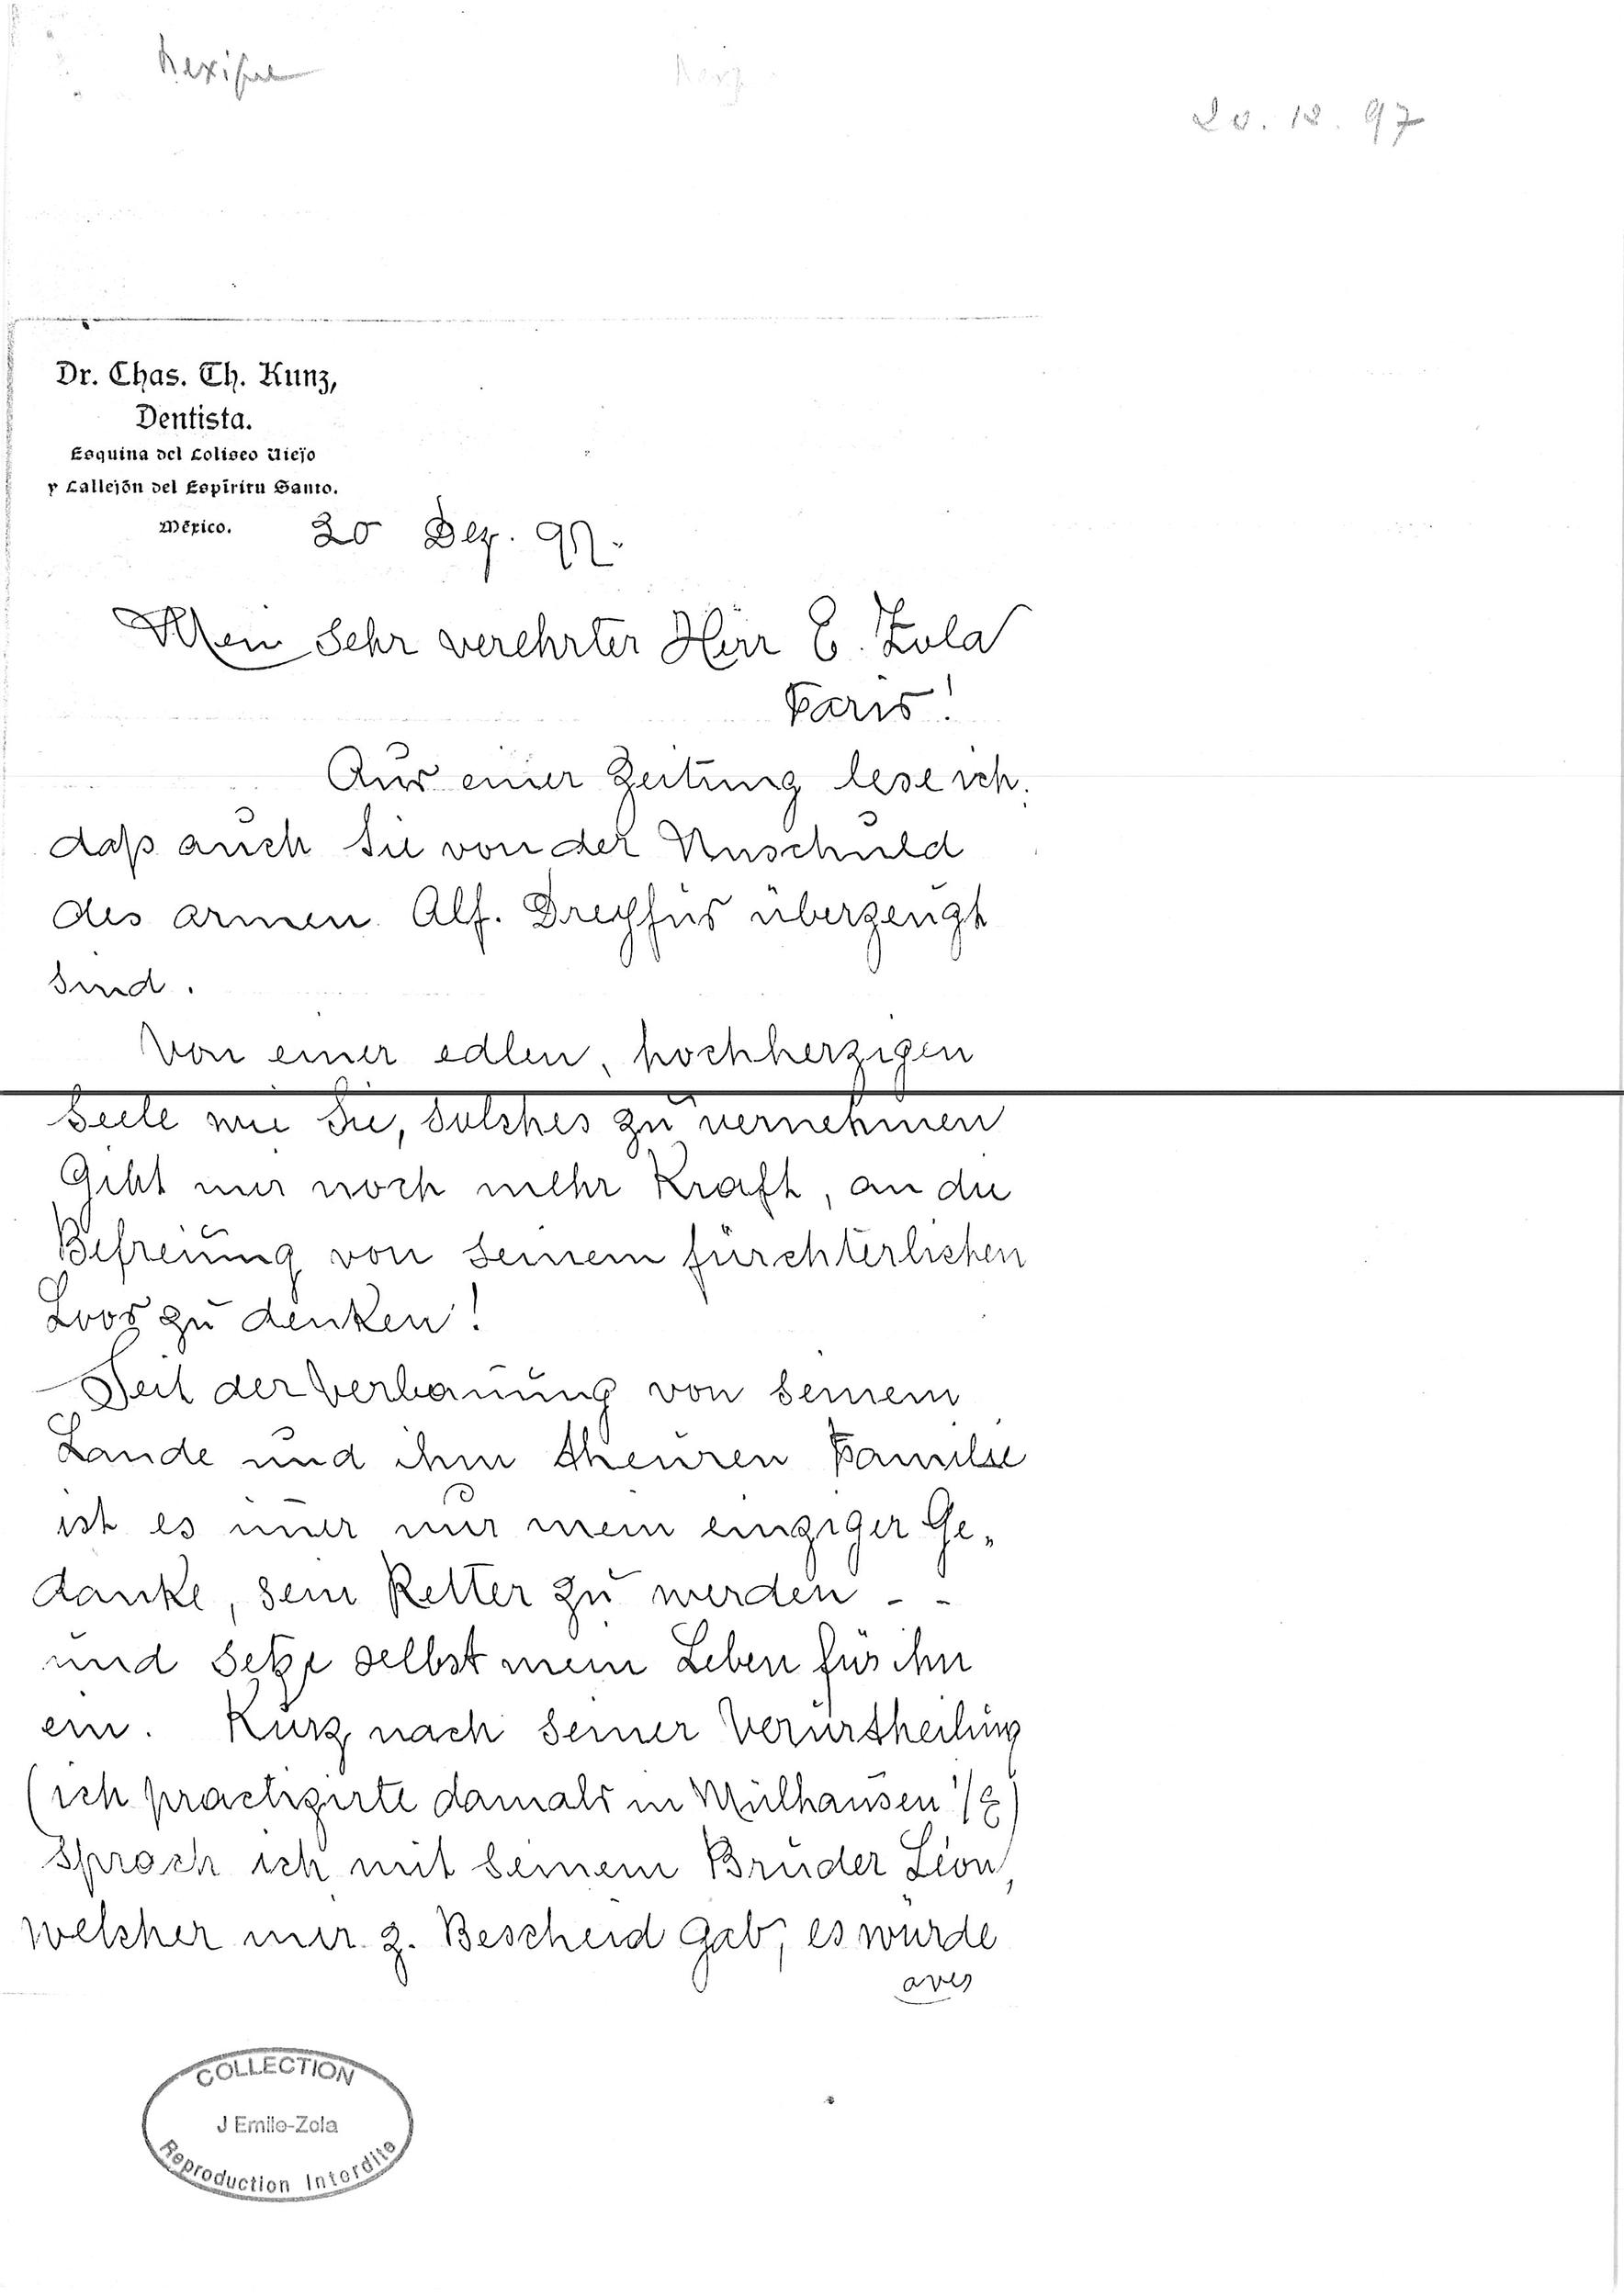 20. 12. 97
Dr. Chas. Th. Kunz,
Dentista.
Esquina del Coliseo Viejo
y Callejón del Espíritu Santo.
México. 20 Dez. 97.
Mein sehr verehrter Herr E. Zola
Paris!
Aus einer Zeitung lese ich,
daß auch Sie von der Unschuld
des armen Alf. Dreyfus überzeugt
sind.
Von einer edlen, hochherzigen
Seele wie Sie, solches zu vernehmen
gibt mir noch mehr Kraft, an die
Befreiung von seinem fürchterlichen
Loos zu denken!
Seit der Verbanung von seinem
Lande und ihm theuren Familie
ist es im̄er nur mein einziger Ge„
danke, sein Retter zu werden - -
und setze selbst mein Leben für ihn
ein. Kurz nach seiner Verurtheilung
(ich practizirte damals in Mülhausen i/E)
sprach ich mit seinem Bruder Léon,
welcher mir z. Bescheid gab, es würde
COLLECTION
J Emile-Zola
Reproduction Interdite